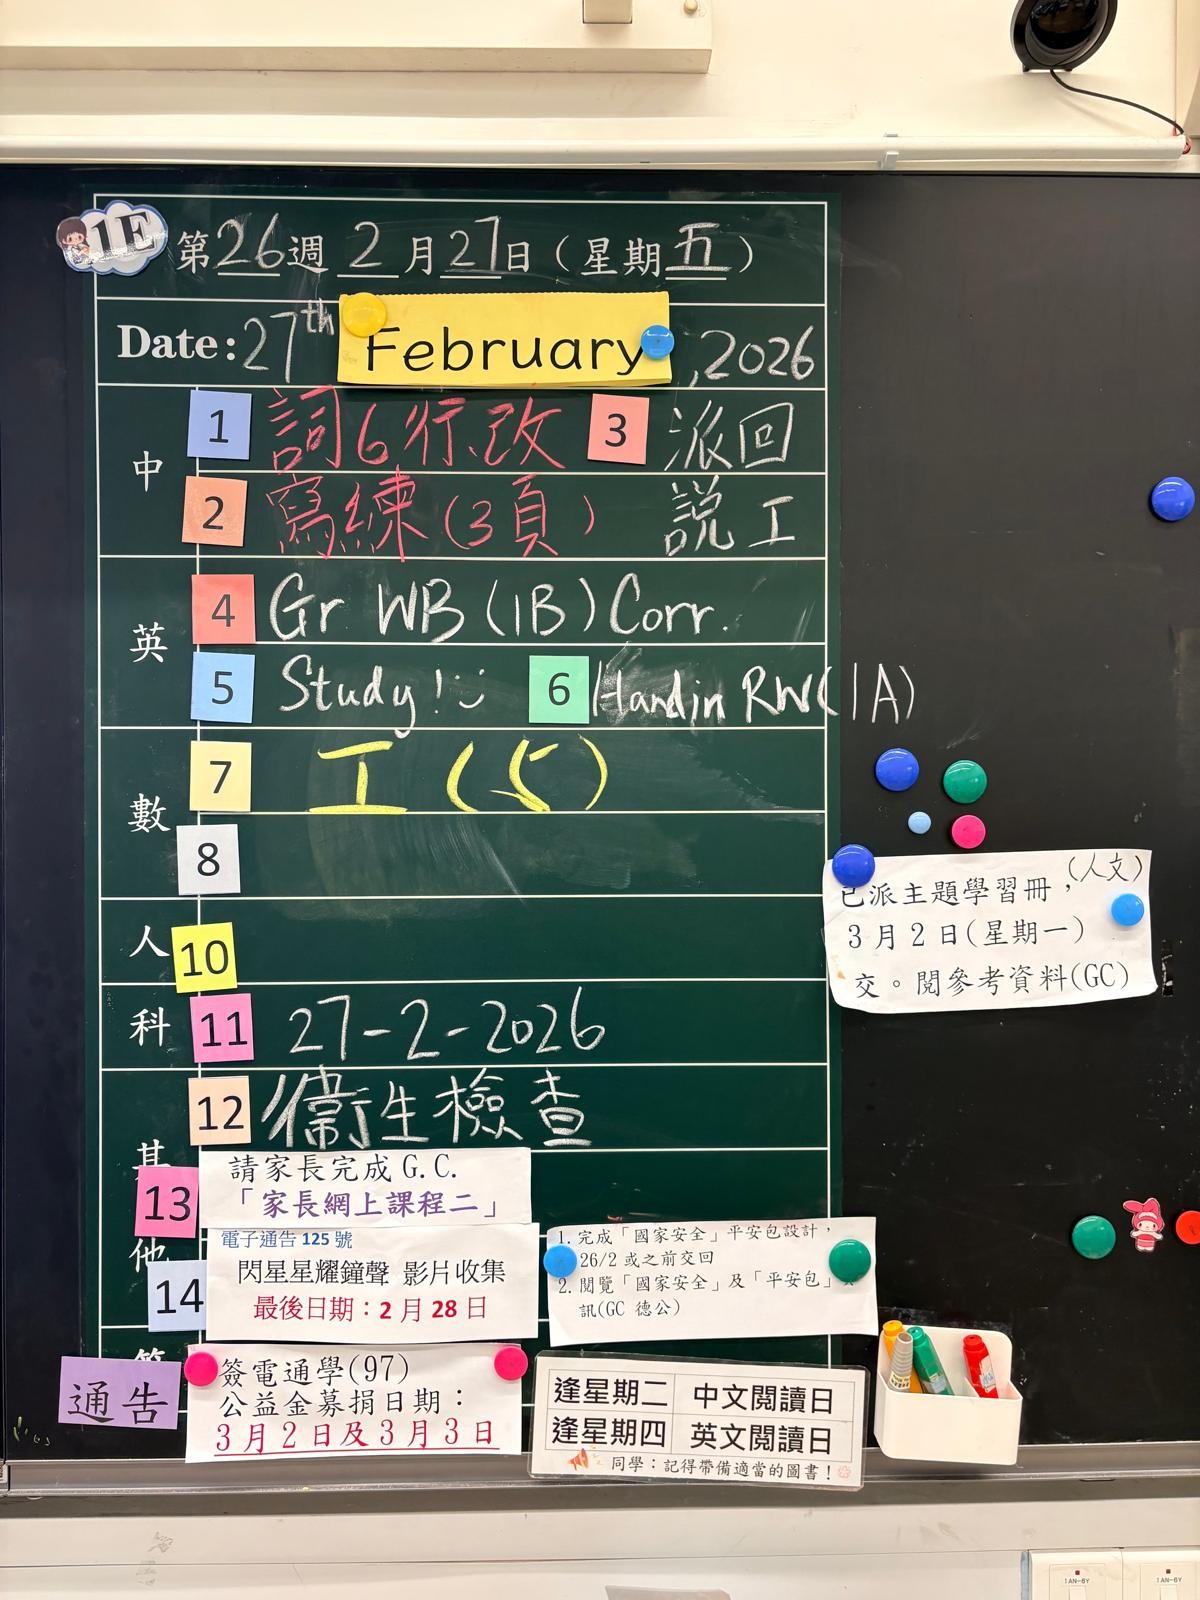 1F
第26週 2月27日(星期五)
Date: 27th February, 2026
中
1 詞6行、改 3 派回
2 寫練(3頁) 說工
英
4 Gr WB (1B) Corr.
5 Study! 6 Hand in RW(1A)
數
7 工(5)
8
人 10
科 11 27-2-2026
其他
12 衞生檢查
13 請家長完成G.C.
「家長網上課程二」
14 電子通告125號
閃星星耀鐘聲 影片收集
最後日期：2月28日
1. 完成「國家安全」平安包設計，
26/2 或之前交回
2. 閱覽「國家安全」及「平安包」
訊(GC 德公)
通告
簽電通學(97)
公益金募捐日期：
3月2日及3月3日
逢星期二 中文閱讀日
逢星期四 英文閱讀日
同學：記得帶備適當的圖書！
已派主題學習冊，(人文)
3月2日(星期一)
交。閱參考資料(GC)
1AN-6Y
1AN-6Y